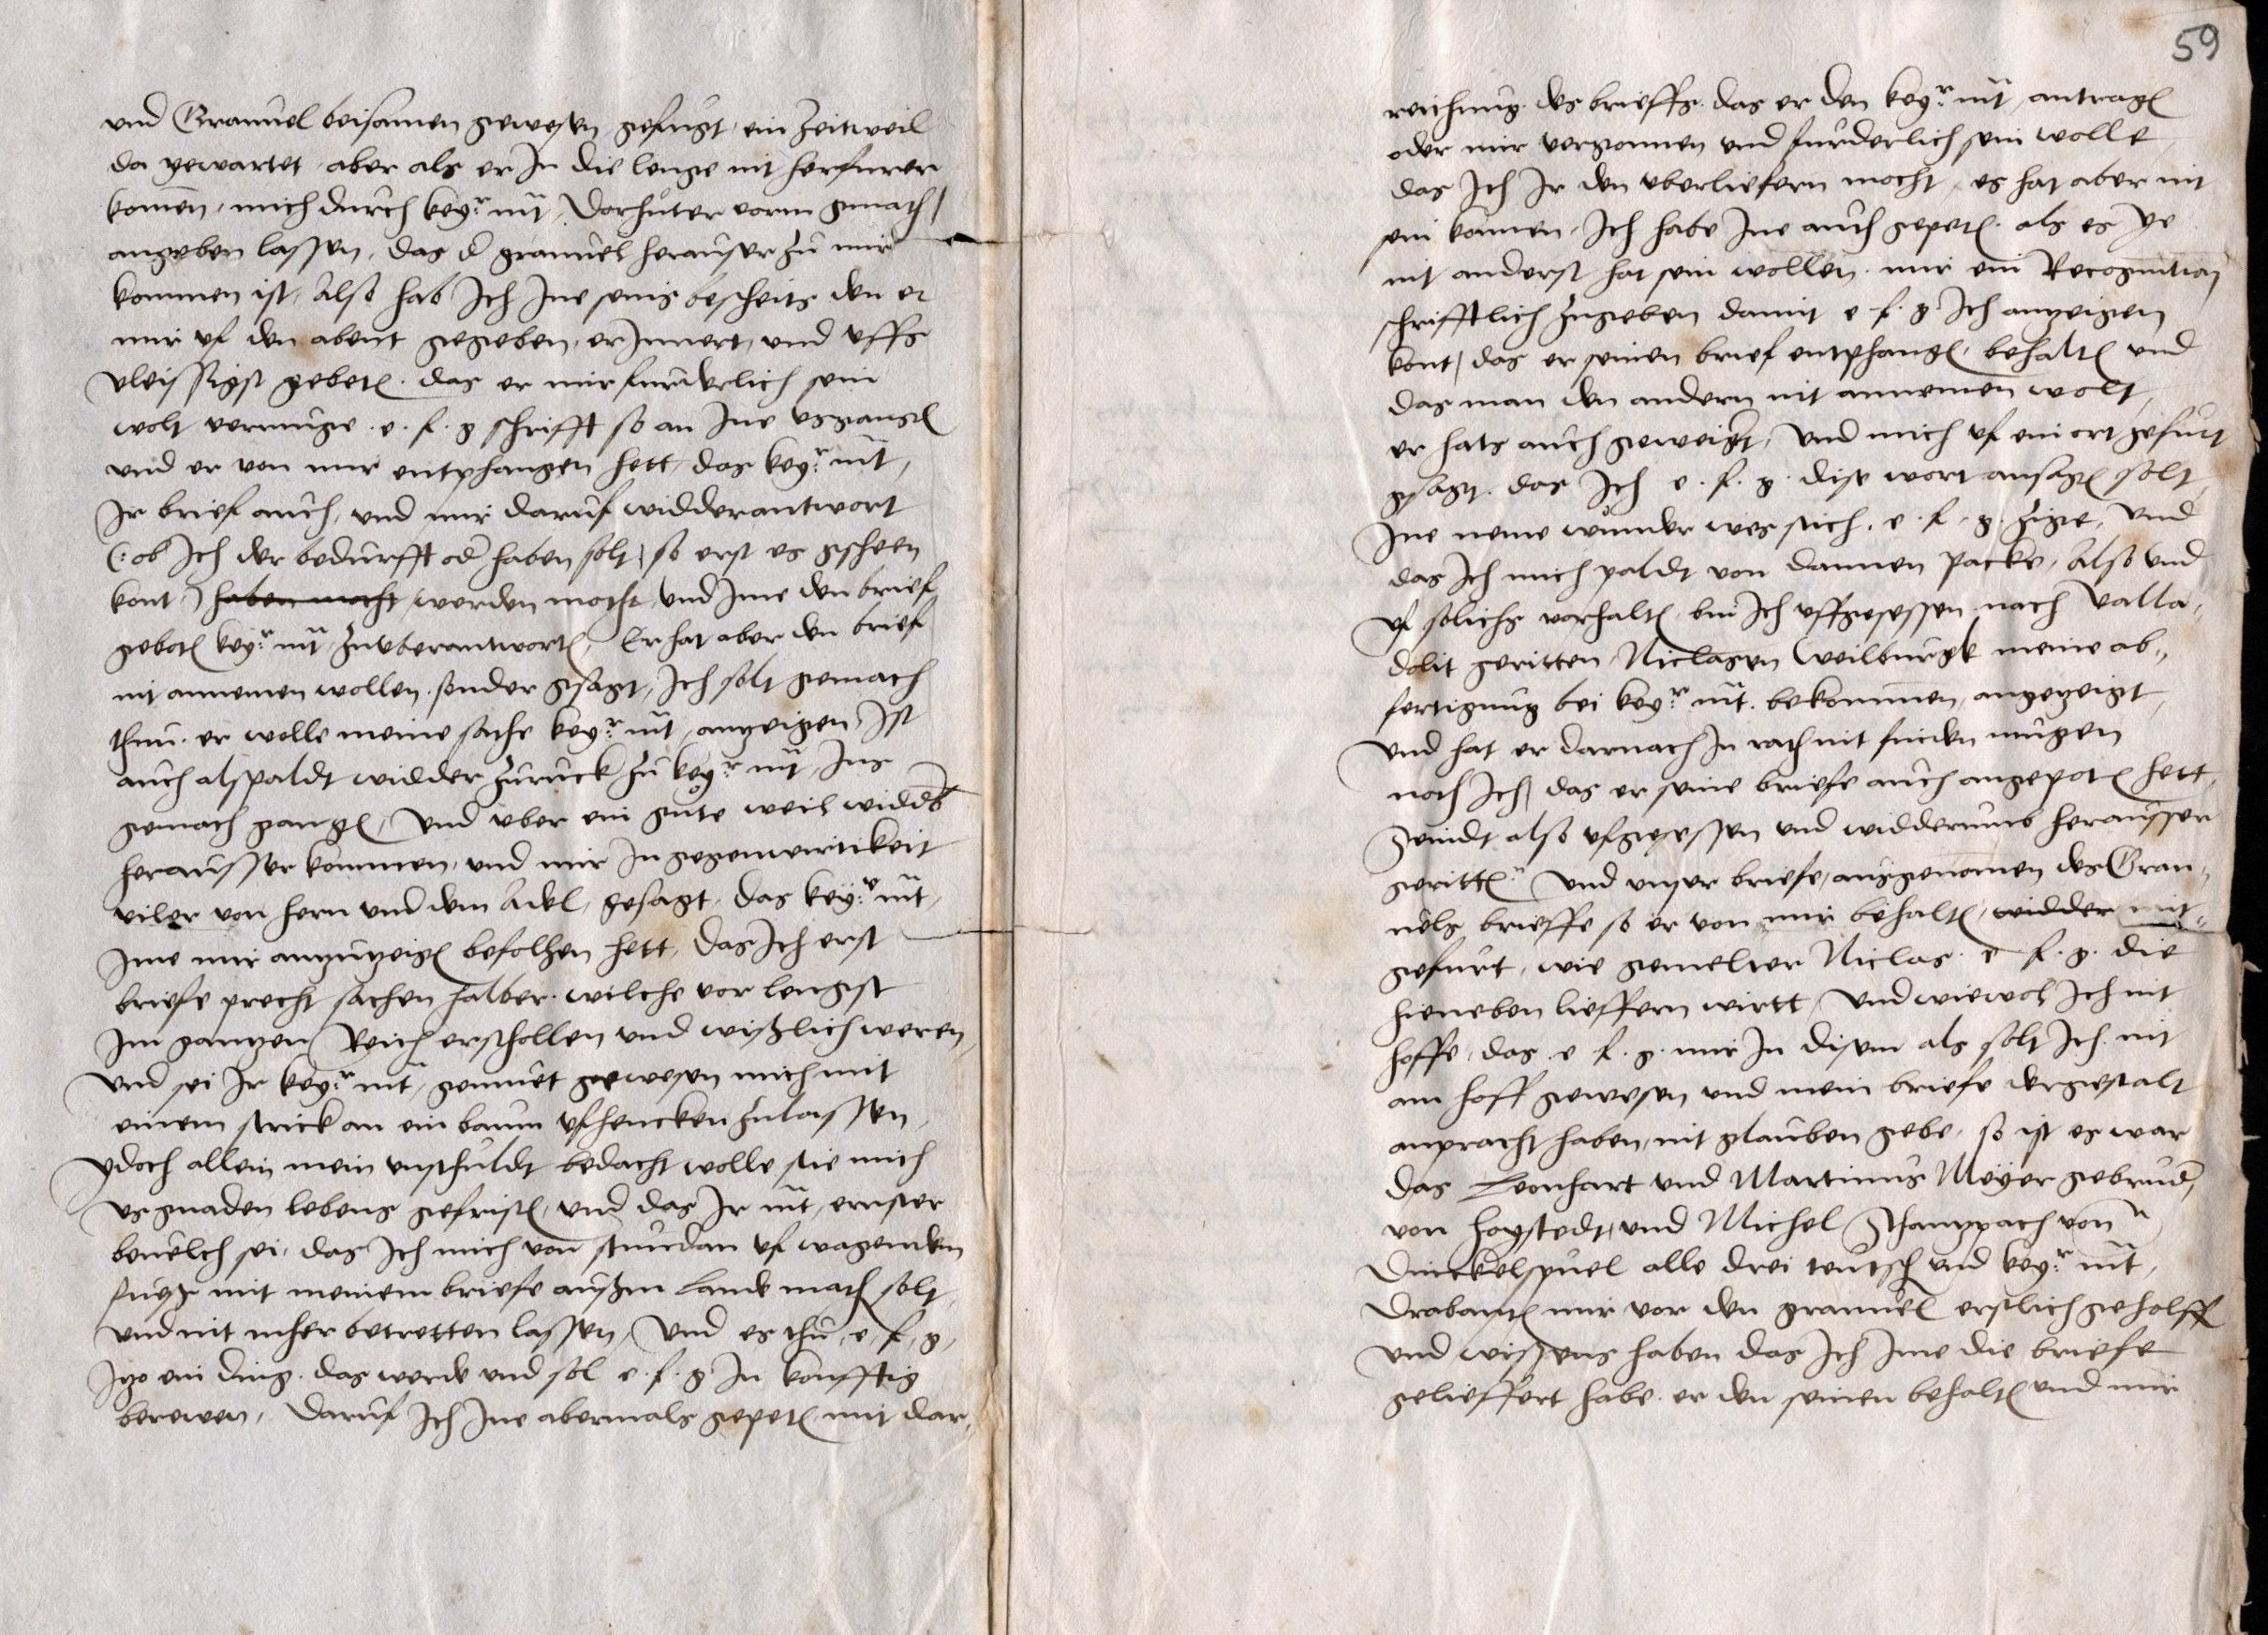 und Granuel beisamen gewesen gefugt, ein zeitweil
da gewartet, aber als er In die lenge nit herfurer
komen, mich durch key:r mt, Dorhuter vorm gmach
angeben lassen, das d granuel herauser zu mir
kommen ist, Also hab Ich Ine seins bescheits den er
mir uf den abent gegeben, erInnert, und uffs
vleissigst gebet. das er mir furderlich sein
wolt vermuge . e . f . g schrifft so an Ine usgangen
und er von mir entphangen hett, das key:r mt,
Ir brief auch, und mir daruf widderantwort
(: ob Ich der bedurfft od haben solt, so erst es gscheen
kont :) haben mocht, werden mocht, und Ime den brief
gebot key:r mt zuuberantwort, Er hat aber den brief
nit annemen wollen. sonder gsagt, Ich solt gemach
thun. er wolle meine sache key:r mt anzeigen, Ist
auch alspaldt widder zuruck zu key:r mt, Ins
gemach gangen, Und uber ein gute weil widder
heraussen kommen, und mir In gegenwertikeit
viler von hern und dem Adel, gesagt, das key:e mt,
Ime mir anzuzeigen befolhen hett, das Ich erst
briefe precht sachen halber. wilche vor lengst
Im gantzen Reich erschollen und wißlich weren,
Und sei Ir key:r mt, gemuet gewesen mich mit
einem strick an ein baum ufhencken zulassen,
ydoch allein mein unschuldt bedacht wolle sie mich
us gnaden lebens gefristen, und das Ir mt, ernster
beuelch sei, das Ich mich von stundan uf wagenden
fueß mit meinem briefe außm Lande mach solt,
und nit meher betretten lassen, Und es thu, e, f, g,
Izo ein ding. das werde und sol e . f . g In konfftig
berewen, Daruf Ich Ine abermals gepeten mit dar,
59
reichung des brieffs. das er den key:r mt, antragen
oder mir vergonnen und furderlich sein wolle
das Ich Ir den uberliefern mocht, es hat aber nit
sein konnen, Ich habe Ine auch gepeten. als es ye
nit anderst hat sein wollen. mir ein Recognition
schrifftlich zugeben damit e . f . g Ich anzeigen
kont, das er seinen brief entphangen, behalten und
das man den andern nit annemen wolt,
er hats auch geweigert, Und mich uf ein ort gefurt
gsagt. das Ich e . f . g . dise wort ansagen solt,
Ine neme wunder wes sich. e . f . g . zige, Und
das Ich mich paldt von dannen packe, Also und
uf solichs vorhalten bin Ich uffgesessen nach Valla,
dolit geritten, Niclasen Weilburgk meine ab,,
fertigung bei key:r mt. bekommen, angezeigt,
Und hat er darnach In rath nit finden mugen
noch Ich, das er seine briefe auch angepoten hett,
Seindt also ufgesessen und widderumb heraussen
geritten. Und unser briefe, ausgenomen des Gran,,
uels brieffe so er von mir behalten, widder mit,,
gefurt, wie gemelter Niclas. e . f . g . die
hieneben lieffern wirtt, Und wiewol Ich nit
hoffe, das . e . f . g . mir In disem als solt Ich nit
am hoff gewesen und mein briefe dergestalt
anpracht haben, nit glauben gebe, so ist es war
das Leonhart und Martinus Meyer gebrud,
von Hoystedt, und Michel von
Dinckelspuel alle drei teutsch und key:r mt,
Drabanten mir vor den granuel erstlich geholff
und wissens haben das Ich Ime die briefe
gelieffert habe. er den seinen behalten und mir